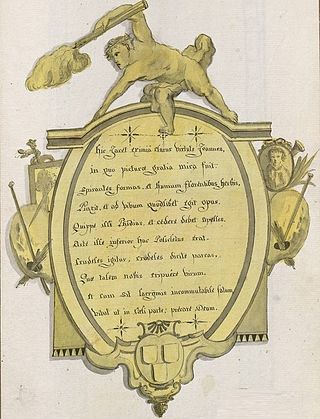 Hic Jacet eximia clarus virtute Joannes,
In quo picturæ gratia mira fuit.
Spirantes formas, et humum florentibus herbis,
Pinxit, et ad vivum quodlibet egit opus.
Quippe illi Phidias, et cedere debet Apelles.
Arte illi inferior hac Policletus erat.
Crudeles igitur, crudeles dicite parcas,
Quæ talem nobis eripuere virum.
Et cum sit lacrymis incommutabile fatum,
Vivat ut in Cœli parte; precare Deum.